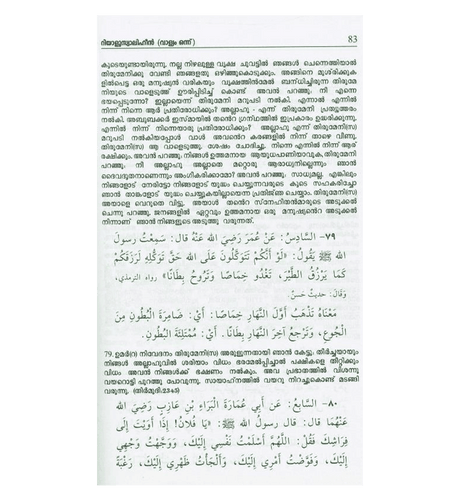 റിയാളുസ്വാലിഹീൻ (വാള്യം ഒന്ന്) 83
കൂടെയുണ്ടായിരുന്നു. നല്ല നിഴലുള്ള വൃക്ഷ ചുവട്ടിൽ ഞങ്ങൾ ചെന്നെത്തിയാൽ
തിരുമേനിക്കു വേണ്ടി ഞങ്ങളതു ഒഴിഞ്ഞുകൊടുക്കും. അങ്ങിനെ മുശ്‌രിക്കുക
ളിൽപെട്ട ഒരു മനുഷ്യൻ വരികയും വൃക്ഷത്തിന്മേൽ ബന്ധിച്ചിരുന്ന തിരുമേ
നിയുടെ വാളെടുത്ത് ഊരിപ്പിടിച്ച് കൊണ്ട് അവൻ പറഞ്ഞു. നീ എന്നെ
ഭയപ്പെടുന്നോ? ഇല്ലായെന്ന് തിരുമേനി മറുപടി നൽകി. എന്നാൽ എന്നിൽ
നിന്ന് നിന്നെ ആര് പ്രതിരോധിക്കും? അല്ലാഹു - എന്ന് തിരുമേനി പ്രത്യുത്തരം
നൽകി. അബൂബക്കർ ഇസ്മായിൽ തന്റെ ഗ്രന്ഥത്തിൽ ഇപ്രകാരം ഉദ്ധരിക്കുന്നു.
എന്നിൽ നിന്ന് നിന്നെയാരു പ്രതിരോധിക്കും? അല്ലാഹു എന്ന് തിരുമേനി(സ)
മറുപടി നൽകിയപ്പോൾ വാൾ അവന്റെ കരങ്ങളിൽ നിന്ന് താഴെ വീണു.
തിരുമേനി(സ) ആ വാളെടുത്തു. ശേഷം ചോദിച്ചു. നിന്നെ എന്നിൽ നിന്ന് ആര്
രക്ഷിക്കും. അവൻ പറഞ്ഞു. നിങ്ങൾ ഉത്തമനായ ആയുധപാണിയാവുക. തിരുമേനി
പറഞ്ഞു. നീ അല്ലാഹു അല്ലാതെ മറ്റൊരു ആരാധ്യനില്ലെന്നും ഞാൻ
ദൈവദൂതനാണെന്നും അംഗീകരിക്കാമോ? അവൻ പറഞ്ഞു. സാധ്യമല്ല. എങ്കിലും
നിങ്ങളോട് നേരിട്ടോ നിങ്ങളോട് യുദ്ധം ചെയ്യുന്നവരുടെ കൂടെ സഹകരിച്ചോ
ഞാൻ താങ്കളോട് യുദ്ധം ചെയ്യുകയില്ലായെന്ന് പ്രതിജ്ഞ ചെയ്യാം. തിരുമേനി(സ)
അയാളെ വെറുതെ വിട്ടു. അയാൾ തന്റെ സ്നേഹിതന്മാരുടെ അടുക്കൽ
ചെന്നു പറഞ്ഞു. ജനങ്ങളിൽ ഏറ്റവും ഉത്തമനായ ഒരു മനുഷ്യന്റെ അടുക്കൽ
നിന്നാണ് ഞാൻ നിങ്ങളുടെ അടുത്തു വരുന്നത്.
٧٩- السَّادِسُ: عَنْ عُمَرَ رَضِيَ اللهُ عَنْهُ قال: سَمِعْتُ رسولَ
الله ﷺ يَقُولُ: «لَوْ أَنَّكُمْ تَتَوَكَّلُونَ عَلَى اللهِ حَقَّ تَوَكُّلِهِ لَرَزَقَكُمْ
كَمَا يَرْزُقُ الطَّيْرَ، تَغْدُو خِمَاصًا وَتَرُوحُ بِطَانًا» رواه الترمذي،
وَقَالَ: حديثٌ حَسَنٌ.
مَعْنَاهُ تَذْهَبُ أَوَّلَ النَّهَارِ خِمَاصًا: أَيْ: ضَامِرَةَ الْبُطُونِ مِنَ
الْجُوعِ، وَتَرْجِعُ آخِرَ النَّهَارِ بِطَانًا. أَيْ: مُمْتَلِئَةَ الْبُطُونِ.
79. ഉമർ(റ) നിവേദനം തിരുമേനി(സ) അരുളുന്നതായി ഞാൻ കേട്ടു. തീർച്ചയായും
നിങ്ങൾ അല്ലാഹുവിൽ ശരിയാം വിധം ഭരമേൽപിച്ചാൽ പക്ഷികളെ തീറ്റിക്കും
വിധം അവൻ നിങ്ങൾക്ക് ഭക്ഷണം നൽകും. അവ പ്രഭാതത്തിൽ വിശന്ന
വയറൊട്ടി പുറത്തു പോവുന്നു. സായാഹ്നത്തിൽ വയറു നിറച്ചുകൊണ്ട് മടങ്ങി
വരുന്നു. (തിർമുദി:2345)
٨٠- السَّابِعُ: عَن أبي عِمَارَةَ الْبَرَاءِ بْنِ عازِبٍ رَضِيَ اللهُ
عَنْهُمَا قال: قال رسولُ اللهِ ﷺ: «يَا فُلَانُ! إِذَا أَوَيْتَ إِلَى
فِرَاشِكَ فَقُلْ: اللَّهُمَّ أَسْلَمْتُ نَفْسِي إِلَيْكَ، وَوَجَّهْتُ وَجْهِي
إِلَيْكَ، وَفَوَّضْتُ أَمْرِي إِلَيْكَ، وَأَلْجَأْتُ ظَهْرِي إِلَيْكَ، رَغْبَةً